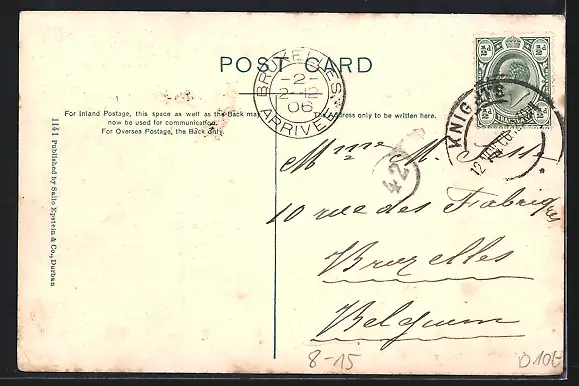 POST CARD
BRUXELLES
-2-
2-12
06
ARRIVEE
½d ½d
For Inland Postage, this space as well as the Back may
now be used for communication.
For Oversea Postage, the Back only.
The Address only to be written here.
KNIGHTS
12 NOV 06
42
Mme M.
10 rue des Fabriques
Bruxelles
Belgium
1141 Published by Sallo Epstein & Co., Durban
8-15